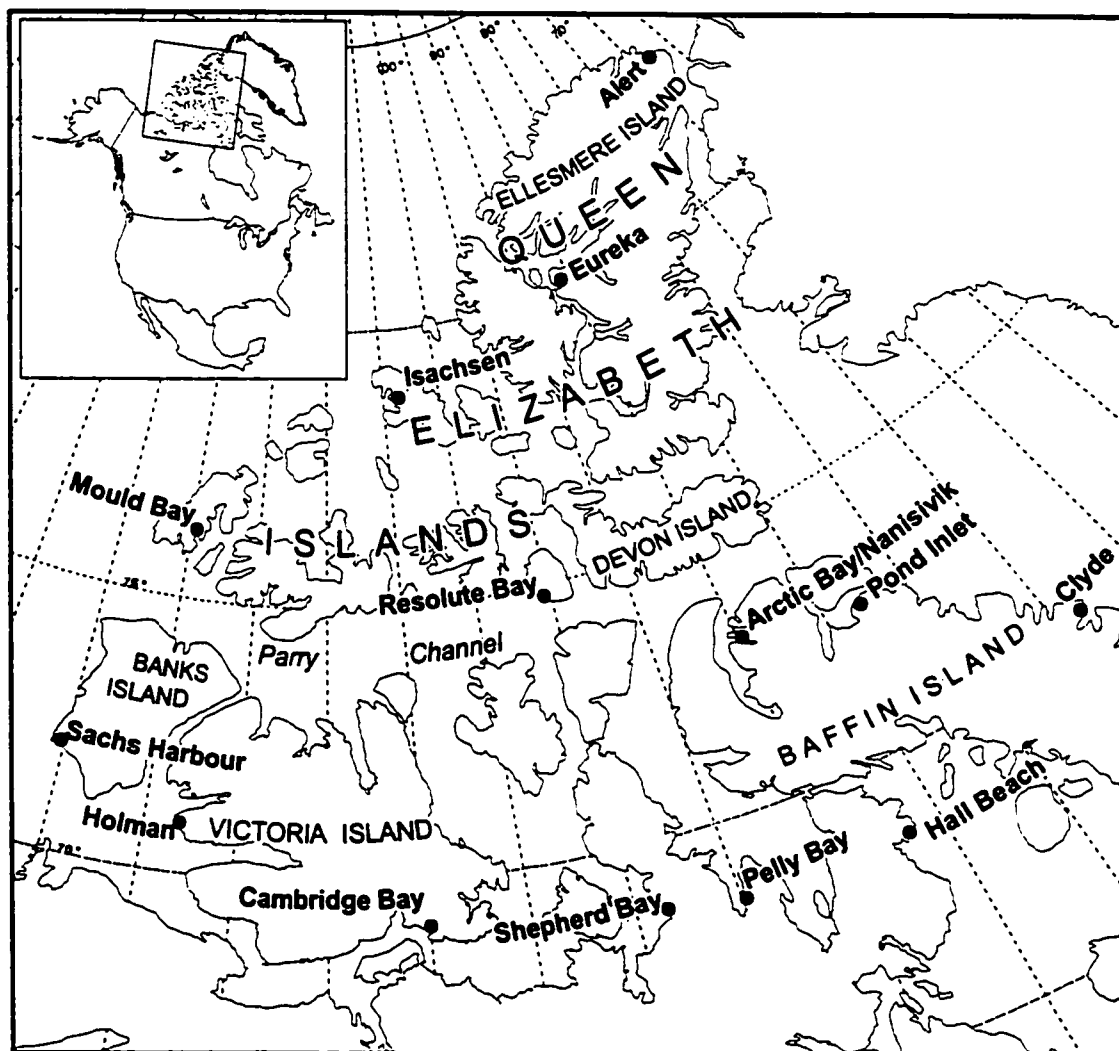 100°
90°
80°
80°
70°
Alert
ELLESMERE ISLAND
QUEEN
Eureka
Isachsen
ELIZABETH
Mould Bay
ISLANDS
DEVON ISLAND
75°
Resolute Bay
Arctic Bay/Nanisivik
Pond Inlet
Clyde
Parry Channel
BANKS
ISLAND
BAFFIN ISLAND
Sachs Harbour
Holman
VICTORIA ISLAND
Hall Beach
70°
Pelly Bay
Cambridge Bay
Shepherd Bay